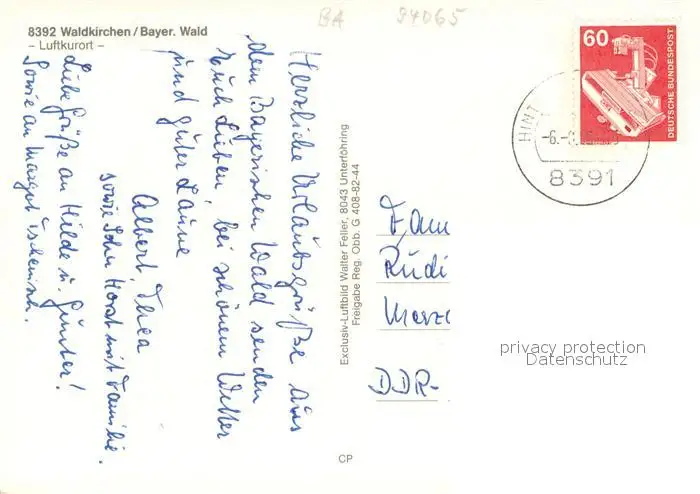 8392 Waldkirchen/Bayer. Wald
- Luftkurort -
BA 94065
60
DEUTSCHE BUNDESPOST
HINT
8391
Herzliche Urlaubsgrüße aus
dem Bayerischen Wald senden
Euch Lieben, bei schönem Wetter
und guter Laune
Albert, Thea
sowie Sohn Horst mit Familie.
Liebe Grüße an Hilde u. Günter!
Sowie an Margot
Exclusiv-Luftbild Walter Feller, 8043 Unterföhring
Freigabe Reg. Obb. G 408-82-44
Fam
Rudi
DDR-
CP
privacy protection
Datenschutz